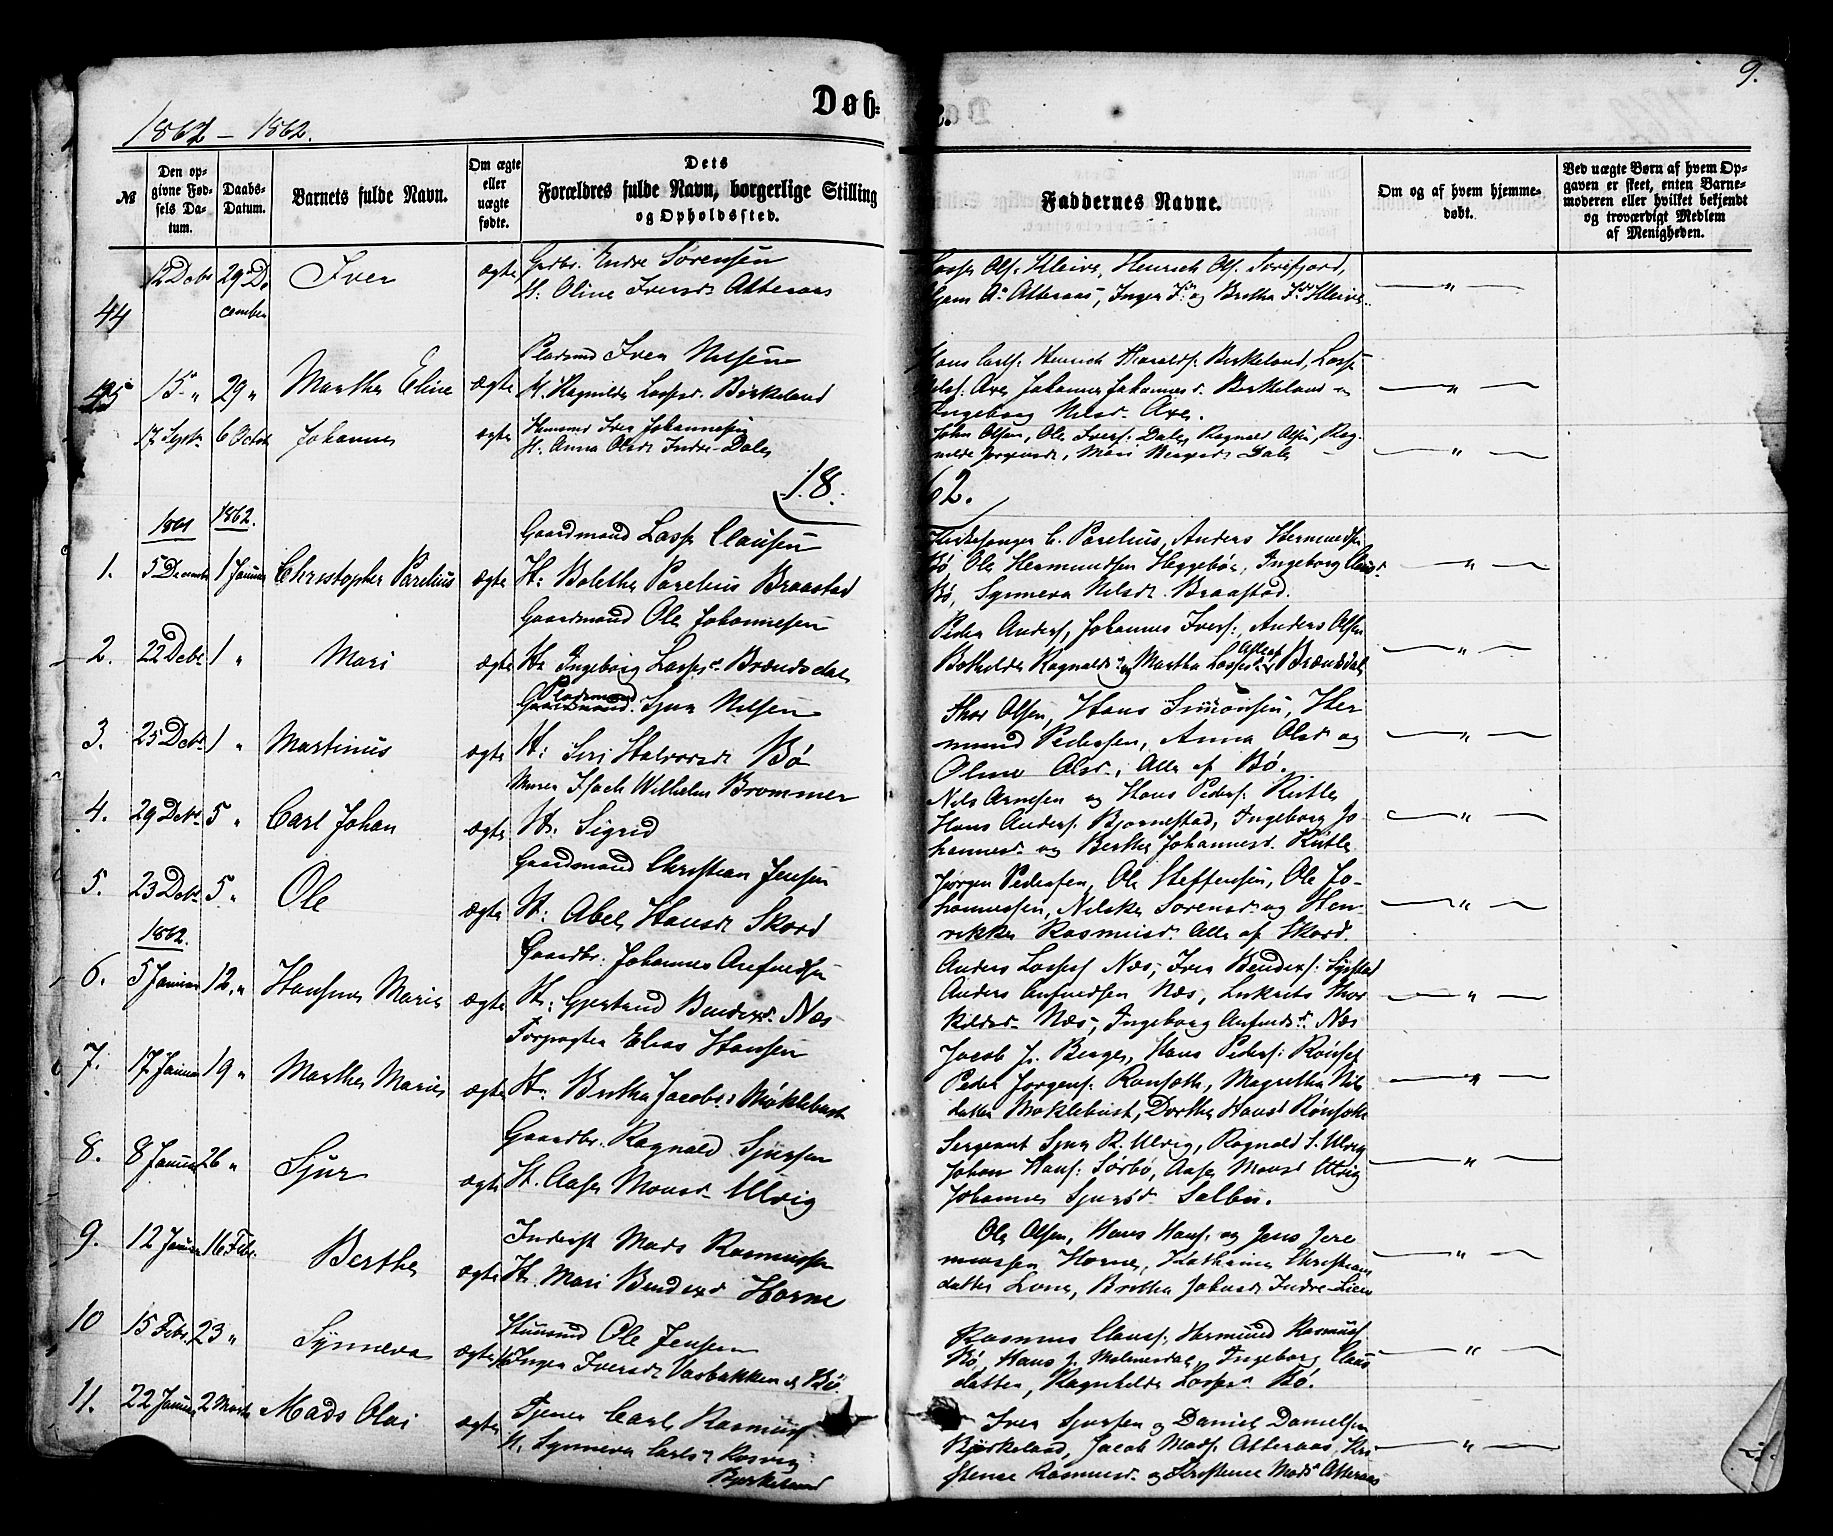 Døb=
e.
9.
1862 - 1862.
№
Den op-
givne Fød-
sels Da-
tum.
Daabs-
Datum.
Barnets fulde Navn.
Om ægte
eller
uægte
fødte.
Dets
Forældres fulde Navn, borgerlige Stilling
og Opholdssted.
Faddernes Navne.
Om og af hvem hjemme-
døbt.
Ved uægte Børn af hvem Op-
gaven er skeet, enten Barne-
moderen eller hvilket bekjendt
og troværdigt Medlem
af Menigheden.
44
12 Decbr 29 De
cember
Iver
ægte
Grdbr. Endre Sørensen
H. Oline Iversd. Atteraas
Olsf. Kleive, Henrich Olsf.
Atteraas, Inger og Bretha Kleive
45
15 " 29 "
Marthe Eline
ægte
Pladsmd Iver Nilsen
H. Ragnilde Lassesd. Birkeland
Hans Henrich Haraldsf. Birkeland, Lasse
Johanne Johannesd. Birkeland
Ingeborg Nilsd. Axe.
17 Septr 6 Octob
Johannes
ægte
Huusmd Iver Johannessen
H. Anna Olsdr Indre-Dale
John Olsen, Ole Iversf. Dale, Ragnald Olsen, Rag-
nilde Mari Dale
18
62.
1861
1862.
1.
5 Decembr 1 Januar
Christopher Parelius
ægte
Gaardmand Lasse Clausen
H: Bolethe Parelius Braastad
Kirkesanger C. Parelius, Anders Hermundsen
Bø, Ole Hermundsen Heggebøe, Ingeborg Clausd.
Bø, Synneva Nilsdr. Braastad.
2.
22 Decbr 1 "
Mari
ægte
Gaardmand Ole Johannesen
H. Ingeborg Lassesd. Brændsdal
Peder Andersf, Johannes Iversf., Anders Olsen
Botholde Ragnaldsd. og Martha Lassesd. Brændsdal
3.
25 Decbr 1 "
Martinus
ægte
Pladsmand
Gaardmand. Sjur Nilsen
H: Siri Halvorsdr Bø
Thor Olsen, Hans Simonsen, Her
mund Pedersen, Anna Olsdr og
Oline Olsd., Alle af Bø.
4.
29 Decbr. 5 "
Carl Johan
ægte
Murer Isach Wilhelm Brommer
H. Sigrid
Nils Arnesen og Hans Pedersf. Rutle
Hans Andersf. Bjørnestad, Ingeborg Jo-
hannesd. og Berthe Johannesd. Rutle
5.
23 Decbr. 5 "
Ole
ægte
Gaardmand Christian Jensen
H. Abel Hansdr Skord
Jørgen Pedersen, Ole Steffensen, Ole Jo-
hannessen, Nilske Sørensd. og Hen-
rikke Rasmusd. Alle af Skord.
1862.
6.
5 Januar 12. "
Hansine Marie
ægte
Gaardbr. Johannes Arefindsen
H. Gjertrud Bendixd. Næs
Anders Lassesf Næs, Iver Bendixsf:
Anders Næs, Thor
kildsd. Næs, Ingeborg Næs
7.
17 Januar 19 "
Marthe Marie
ægte
Forpagter Elias Hansen
H. Brethe Jacobsd Møklebust
Jacob J. Berge, Hans Pedersf:
Peder Jørgensf. Magretha Nils
datter Møklebust, Dorthe Hansd
8.
8 Januar 26 "
Sjur
ægte
Gaardbr. Ragnald Sjursen
H. Aase Monsd. Ulvig
Sergeant Sjur R. Ulvig, Ragnald S. Ulvig
Johan Hansf: Sørbø, Aase Monsd Ulvig
Johanne Sjursd. Salbu.
9.
12 Januar 16 Febr.
Berthe
ægte
Inderst Mads Rasmussen
H. Mari Bendixd Horne
Ole Olsen, Hans Hansf. og Jens Jere
miassen Horne, Kathrine Christians
datter Lone, Brethe Indre-Lien
10
15 Febr. 23 "
Synneva
ægte
Huusmd Ole Jensen
H. Inger Iversdr Vasbakken
Bø.
Rasmus Clausf. Hermund Rasmusf.
Bø, Hans J. Malmesdal, Ingeborg Claus
datter, Ragnhilde Bø.
11.
22 Januar 2 Marts
Mads Olai
ægte
Tjener Carl Rasmusf.
H. Synneva
Bjørkeland
Iver Sjursen og Daniel Danielsen
Bjørkeland, Jacob Madsf. Atteraas, Kri-
stense Rasmusd. og Kristence Madsd. Atteraas